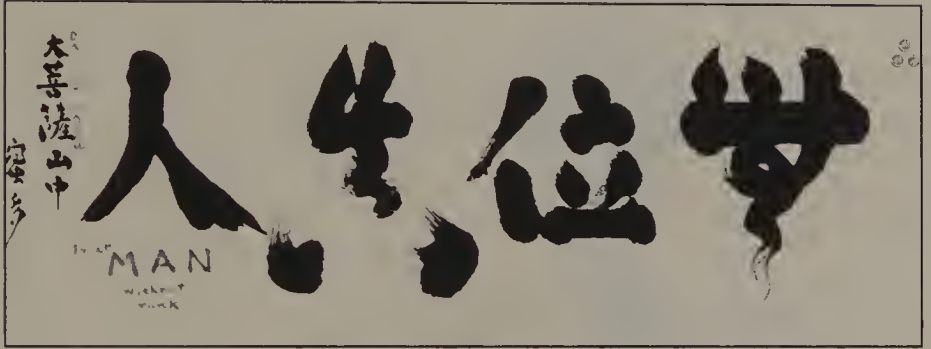 無位真人
大菩薩山中
MAN
without
rank